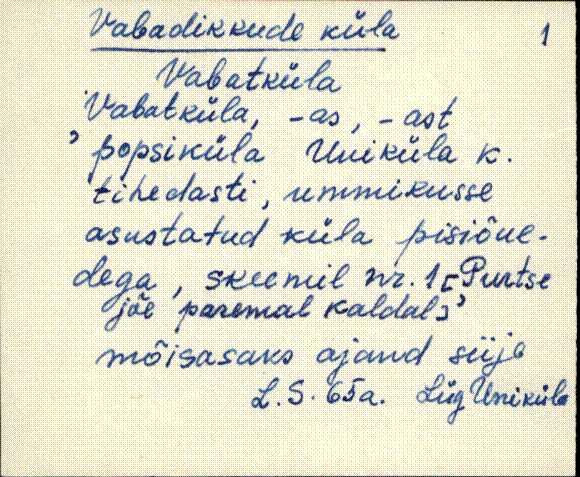 Vabadikkude küla 1
Vabatküla
'Vabatküla, -as, -ast
'popsiküla Uniküla k.
tihedasti, ummikusse
asustatud küla pisiõue-
dega, skeemil nr. 1 [Purtse
jõe paremal kaldal]'
mõisasaks ajand siije
L.S. 65a. Lüg Uniküla